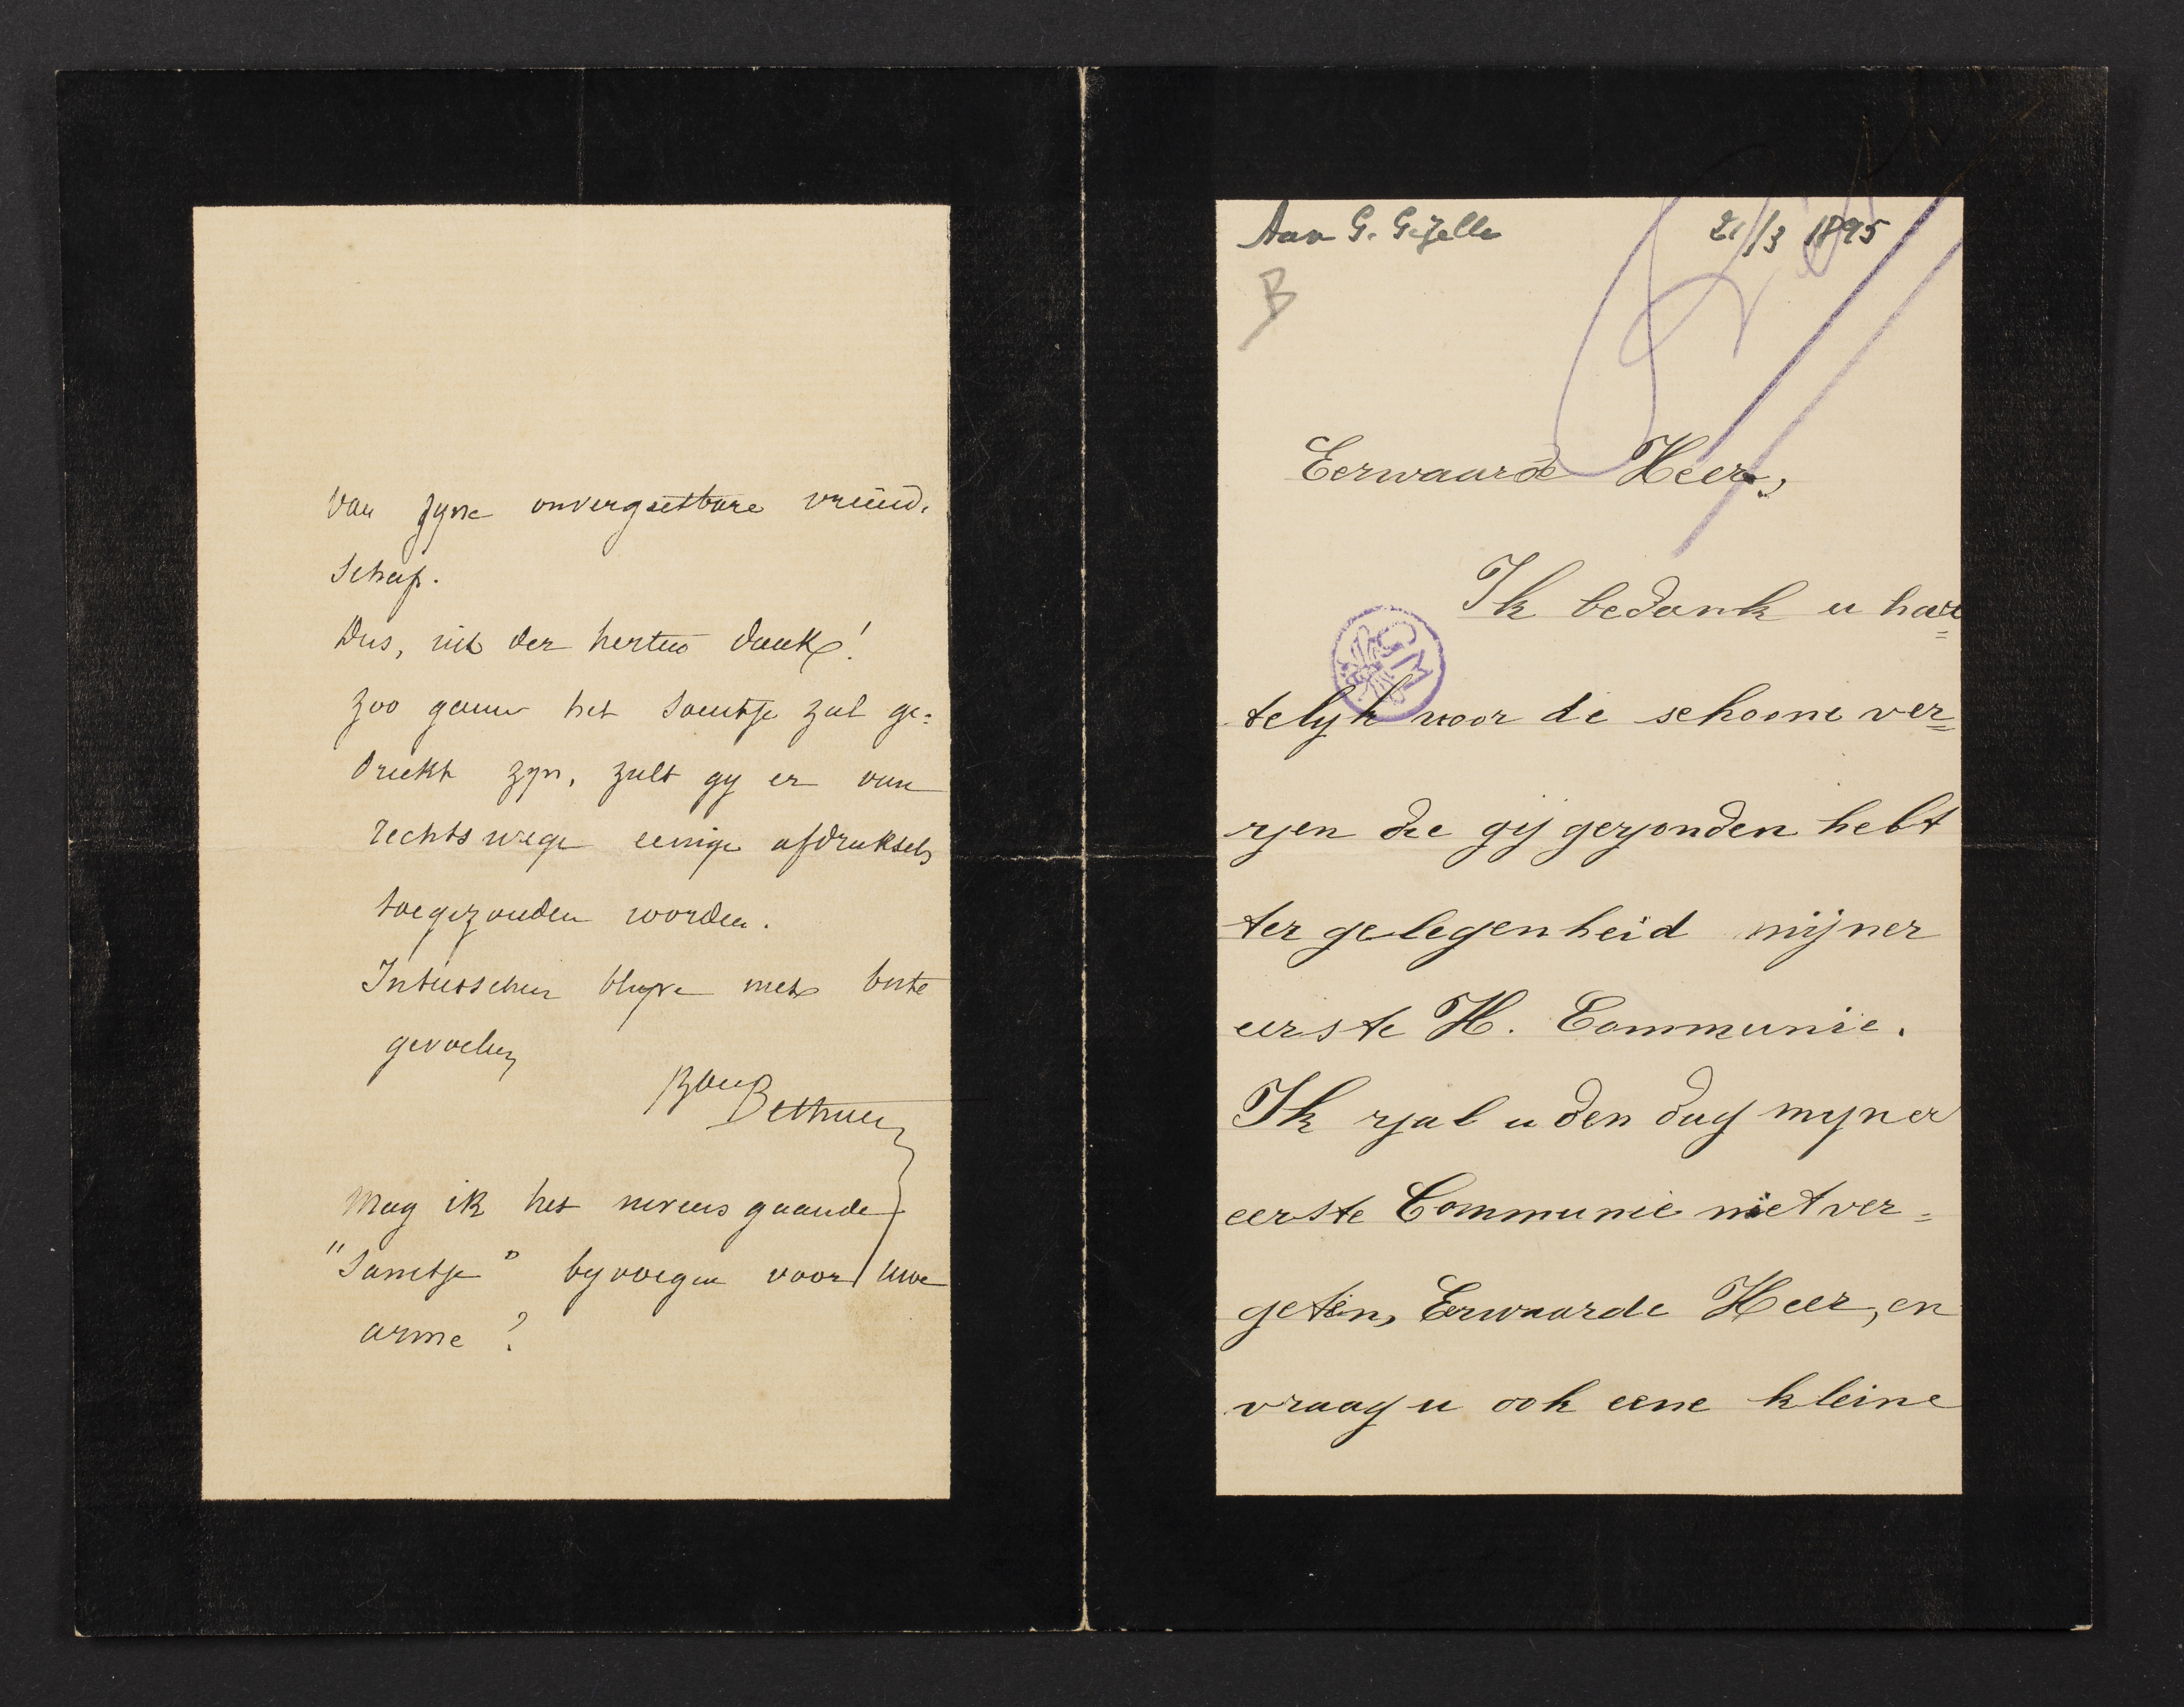 van zyne onvergeetbare vriend-
schap.
Dus, uit der herten dank!
Zoo gauw het santje zal ge=
drukt zyn, zult gy er van
rechtswege eenige afdruksels
toegezonden worden.
Intusschen blyve met beste
gevoelen
Bon Bethune
Mag ik het nevens gaande
"Santje" byvoegen voor uwe
arme?
Aan G. Gezelle 21/3 1895
B
Eerwaarde Heer,
Ik bedank u har=
telyk voor de schoone ver=
zen die gij gezonden hebt
ter gelegenheid mijner
eerste H. Communie.
Ik zal u den dag myner
eerste Communie niet ver=
geten, Eerwaarde Heer, en
vraag u ook eene kleine